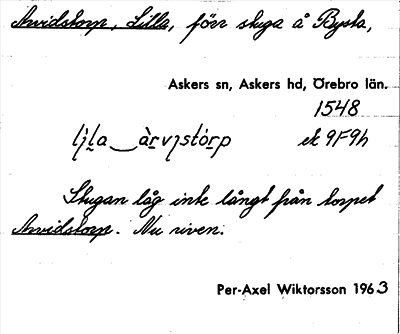 Arvidstorp, Lilla, förr stuga å Bysta,
Askers sn, Askers hd, Örebro län.
1548
lı̣l̲a‿àr̲vı̣stór̲p ek 9F9h
Stugan låg inte långt från torpet
Arvidstorp. Nu riven.
Per-Axel Wiktorsson 1963